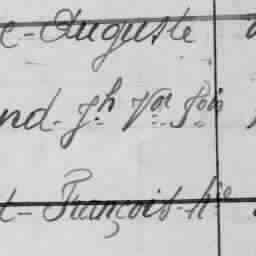 e-Auguste
nd-Jh Vor Fois
t-François-Hie